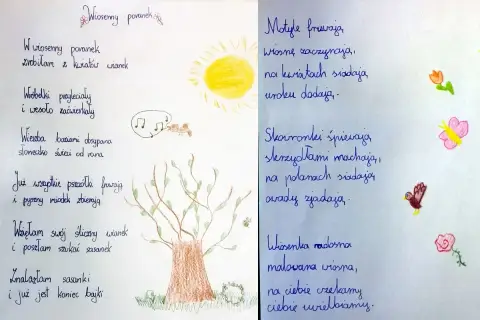 Wiosenny poranek
W wiosenny poranek
zrobiłam z kwiatów wianek
przyleciały
i wesoło zaćwierkały
Wierzba baziami obsypana
słoneczko świeci od rana
Już wszystkie pszczółki fruwają
i pyszny miodek zbierają
Wzięłam swój śliczny wianek
i poszłam szukać sasanek
Znalazłam sasanki
i już jest koniec bajki
Motyle fruwają
wiosnę zaczynają,
na kwiatach siadają
uroku dodają.
Skowronki śpiewają
skrzydłami machają,
na polanach siadają
owady zjadają.
Wiosenka radosna
malowana wiosna,
na ciebie czekamy
ciebie uwielbiamy.